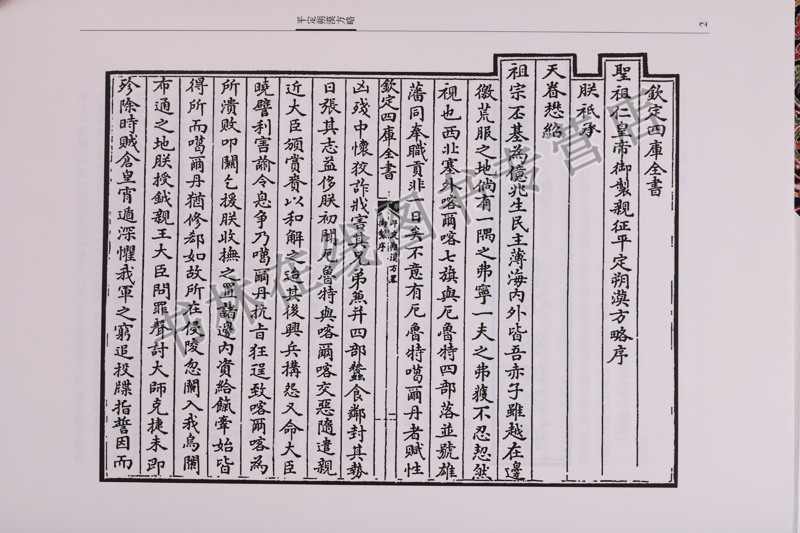 平定朔漠方略
2
欽定四庫全書
聖祖仁皇帝御製親征平定朔漠方略序
朕祇承
天眷懋紹
祖宗丕基為億兆生民主薄海內外皆吾赤子雖越在邊
徼荒服之地倘有一隅之弗寧一夫之弗獲不忍恝然
視也西北塞外喀爾喀七旗與厄魯特四部落並號雄
藩同奉職貢非一日矣不意有厄魯特噶爾丹者賦性
欽定四庫全書
凶殘中懷狡詐戕害其兄弟兼并四部蠶食鄰封其勢
日張其志益侈朕初聞厄魯特與喀爾喀交惡隨遣親
近大臣頒賞賚以和解之迨其後興兵搆怨又命大臣
曉譬利害諭令息爭乃噶爾丹抗旨狂逞致喀爾喀為
所潰敗叩關乞援朕收撫之置諸邊內資給餼牽始皆
得所而噶爾丹猶修郄如故所在侵陵忽闌入我烏闌
布通之地朕授鉞親王大臣問罪聲討大師克捷未即
殄除時賊倉皇宵遁深懼我軍之窮追投牒指誓因而
书林在线图书专营店